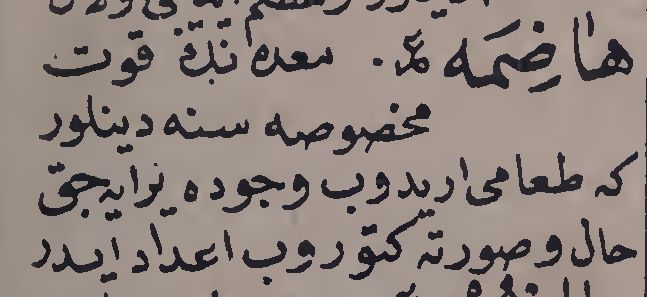 هاضِمَه ع. معده نڭ قوت
مخصوصه سنه دینلور
كه طعامی اریدوب وجوده یرایه‌جق
حال و صورته كتوروب اعداد ایدر